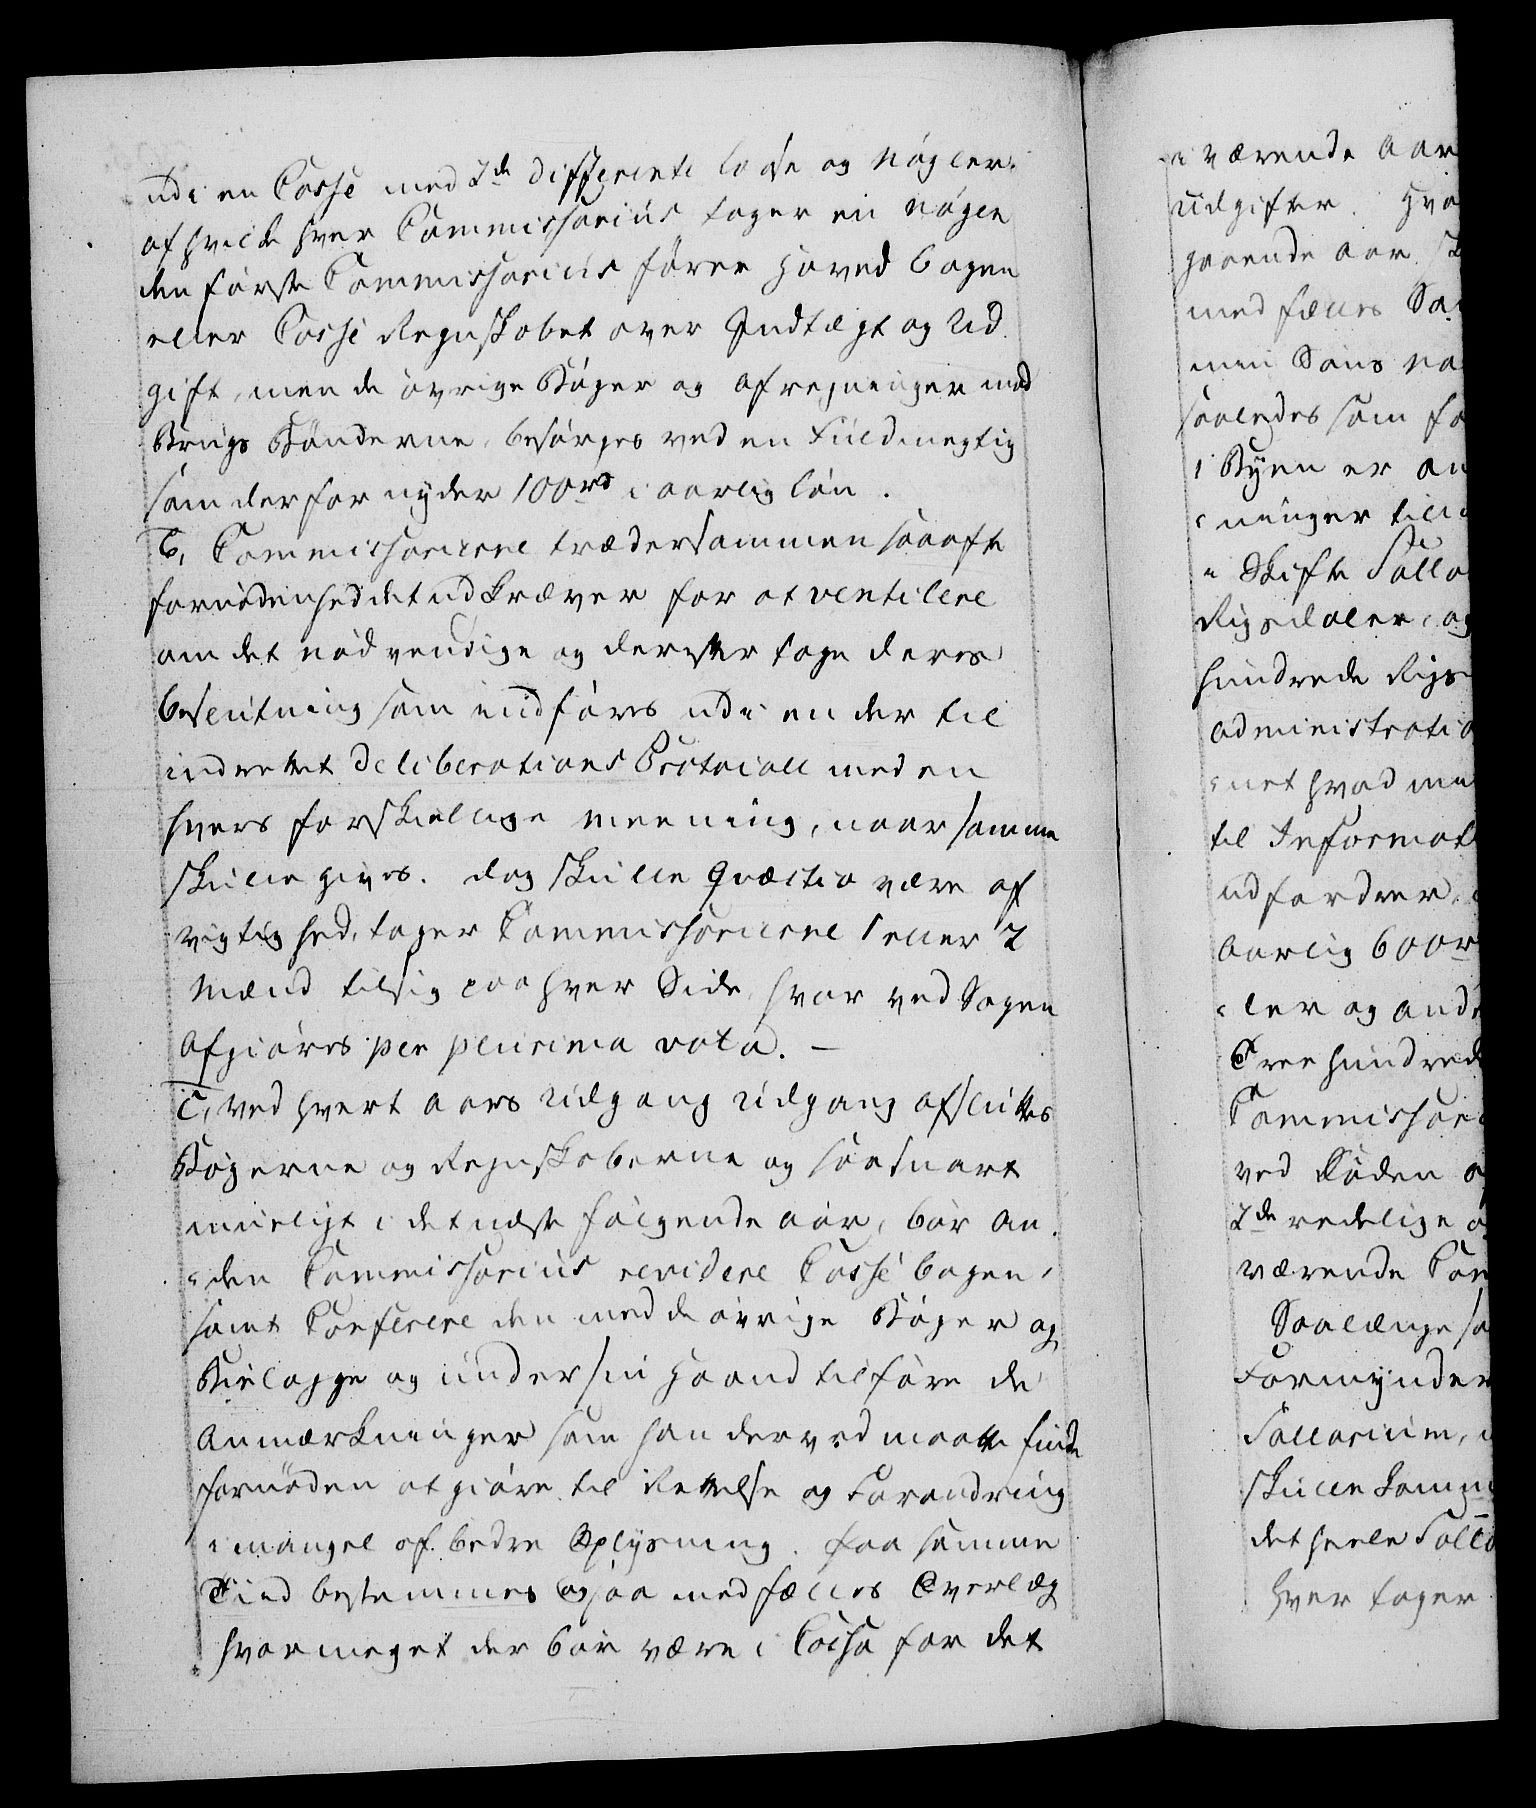 udi en Casse med 2de differente laase og nögler,
af hvilke hver Commissarius tager en nögle
den förste Commissarius förer Hoved bogen
eller Casse Regnskabet over Indtægt og Ud
gift, men de övrige Böger og afregninger med
Brugs Bönderne, besörges ved en Fuldmegtig
som derfor nyder 100rd i aarlig lön.
b, Commissarierne træder sammen saa ofte
fornödenhed det udkræver for at ventilere
om det nödvendige og derefter tage deres
beslutning som indföres udi en der til
indrettet Deliberations Protocoll med en
hvers forskiellige meening, naar samme
skulle gives. dog skulle Qvæstio være af
vigtighed, tager Commissarierne 1 eller 2
Mænd til sig paa hver Side, hvor ved Sagen
afgiöres per plurima vota. –
c, ved hvert aars Udgang Udgang afsluttes
Bögerne og Regnskaberne og saa snart
mueligt i det næst fölgende aar, bör an,
den Commissarius revidere Casse bogen,
samt Conferere den med de övrige Böger og
Bielagge og under sin Haand tilföre de
Anmærkninger som han derved maatte finde
fornöden at giöre til Rettelse og Forandring
i mangel af bedre Oplysning. Paa samme
Tiid bestemmes ogsaa med fælles Overlæg
hvormeget der bör være i Cassa for det
værende Aar
Udgifter. Hva
gaaende aar
med fælles
min Söns
saaledes som
i Byen er an
ninger till
Skifte Salla
Rigsdaler, og
hundrede Rigs
administratio
net hvad me
til Informat
udfordrer,
Aarlig 600r
ler og and
Tree hundrede
Commissari
ved Döden
2de redelige
værende Com
Saalænge
Formynder
Sallarium,
skulle komm
det heele Salla
hver tager